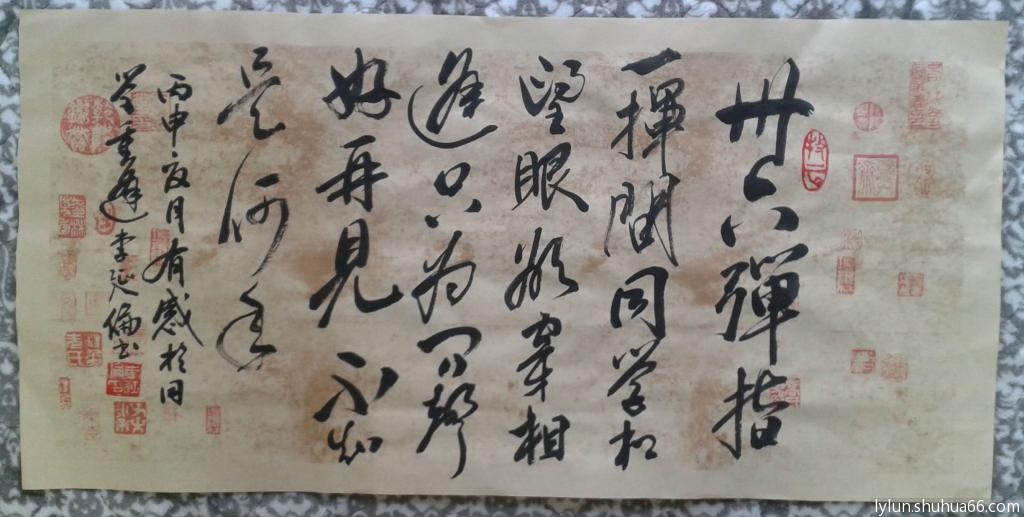 卅六彈指
一揮間同学相
望眼欲穿相
逢只为问聲
好再見不知
是何年
丙申夏月有感於同
学重逢 李延倫书
lylun.shuhua66.com